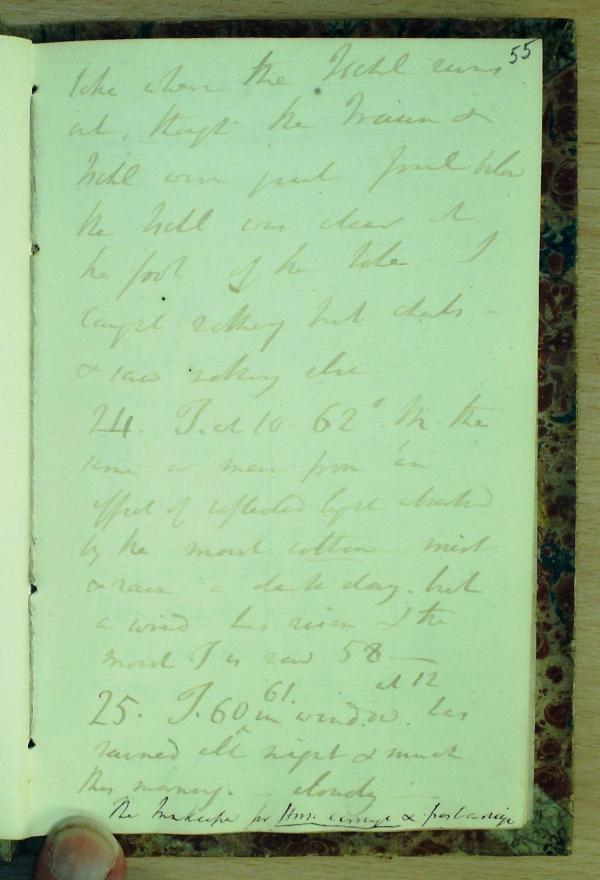 55
lake where the Ischl runs
out, though the Traun &
Ischl were quite foul below
the Ischl was clear at
the foot of the lake I
caught nothing but chubs –
& saw nothing else
24. T. at 10 62° the
same or more from an
effect of reflected light absorbed
by the moist cotton mist
& rain a dark day. but
a wind has risen & the
moist T is now 58 —
61. at 12
25. T. 60 in window. has
rained all night & much
this morning. – cloudy
The Innkeeper for Horse carriage &